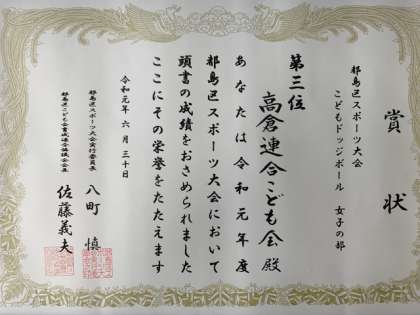 賞状
都島区スポーツ大会
こどもドッジボール 女子の部
第三位
高倉連合こども会殿
あなたは令和元年度
都島区スポーツ大会において
頭書の成績をおさめられました
ここにその栄誉をたたえます
令和元年六月三十日
都島区スポーツ大会実行委員長
八町 慎
都島区こども会育成連合協議会会長
佐藤義夫